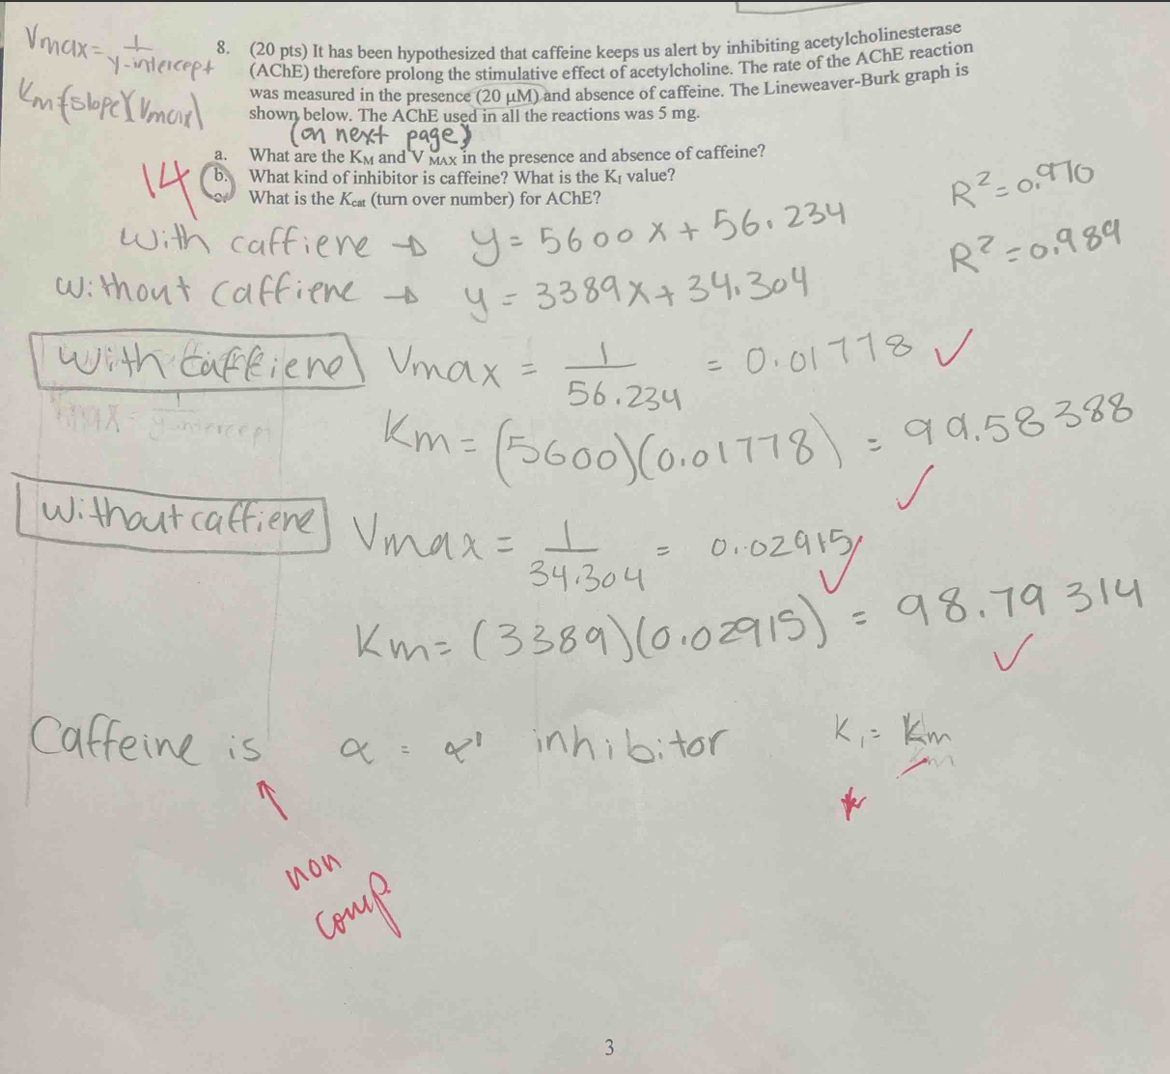 Vmax = 1 / y-intercept
Km (slope)(Vmax)
8. (20 pts) It has been hypothesized that caffeine keeps us alert by inhibiting acetylcholinesterase
(AChE) therefore prolong the stimulative effect of acetylcholine. The rate of the AChE reaction
was measured in the presence (20 μM) and absence of caffeine. The Lineweaver-Burk graph is
shown below. The AChE used in all the reactions was 5 mg.
(on next page)
a. What are the KM and V MAX in the presence and absence of caffeine?
14
b. What kind of inhibitor is caffeine? What is the KI value?
c. What is the Kcat (turn over number) for AChE?
With caffiene → y = 5600x + 56.234 R² = 0.970
without caffiene → y = 3389x + 34.304 R² = 0.989
With caffiene Vmax = 1 / 56.234 = 0.01778 ✓
Vmax = 1 / y-intercept
Km = (5600)(0.01778) = 99.58388 ✓
Without caffiene Vmax = 1 / 34.304 = 0.02915 ✓
Km = (3389)(0.02915) = 98.79314 ✓
Caffeine is α = α' inhibitor K₁ = Km
↑
non
comp.
3